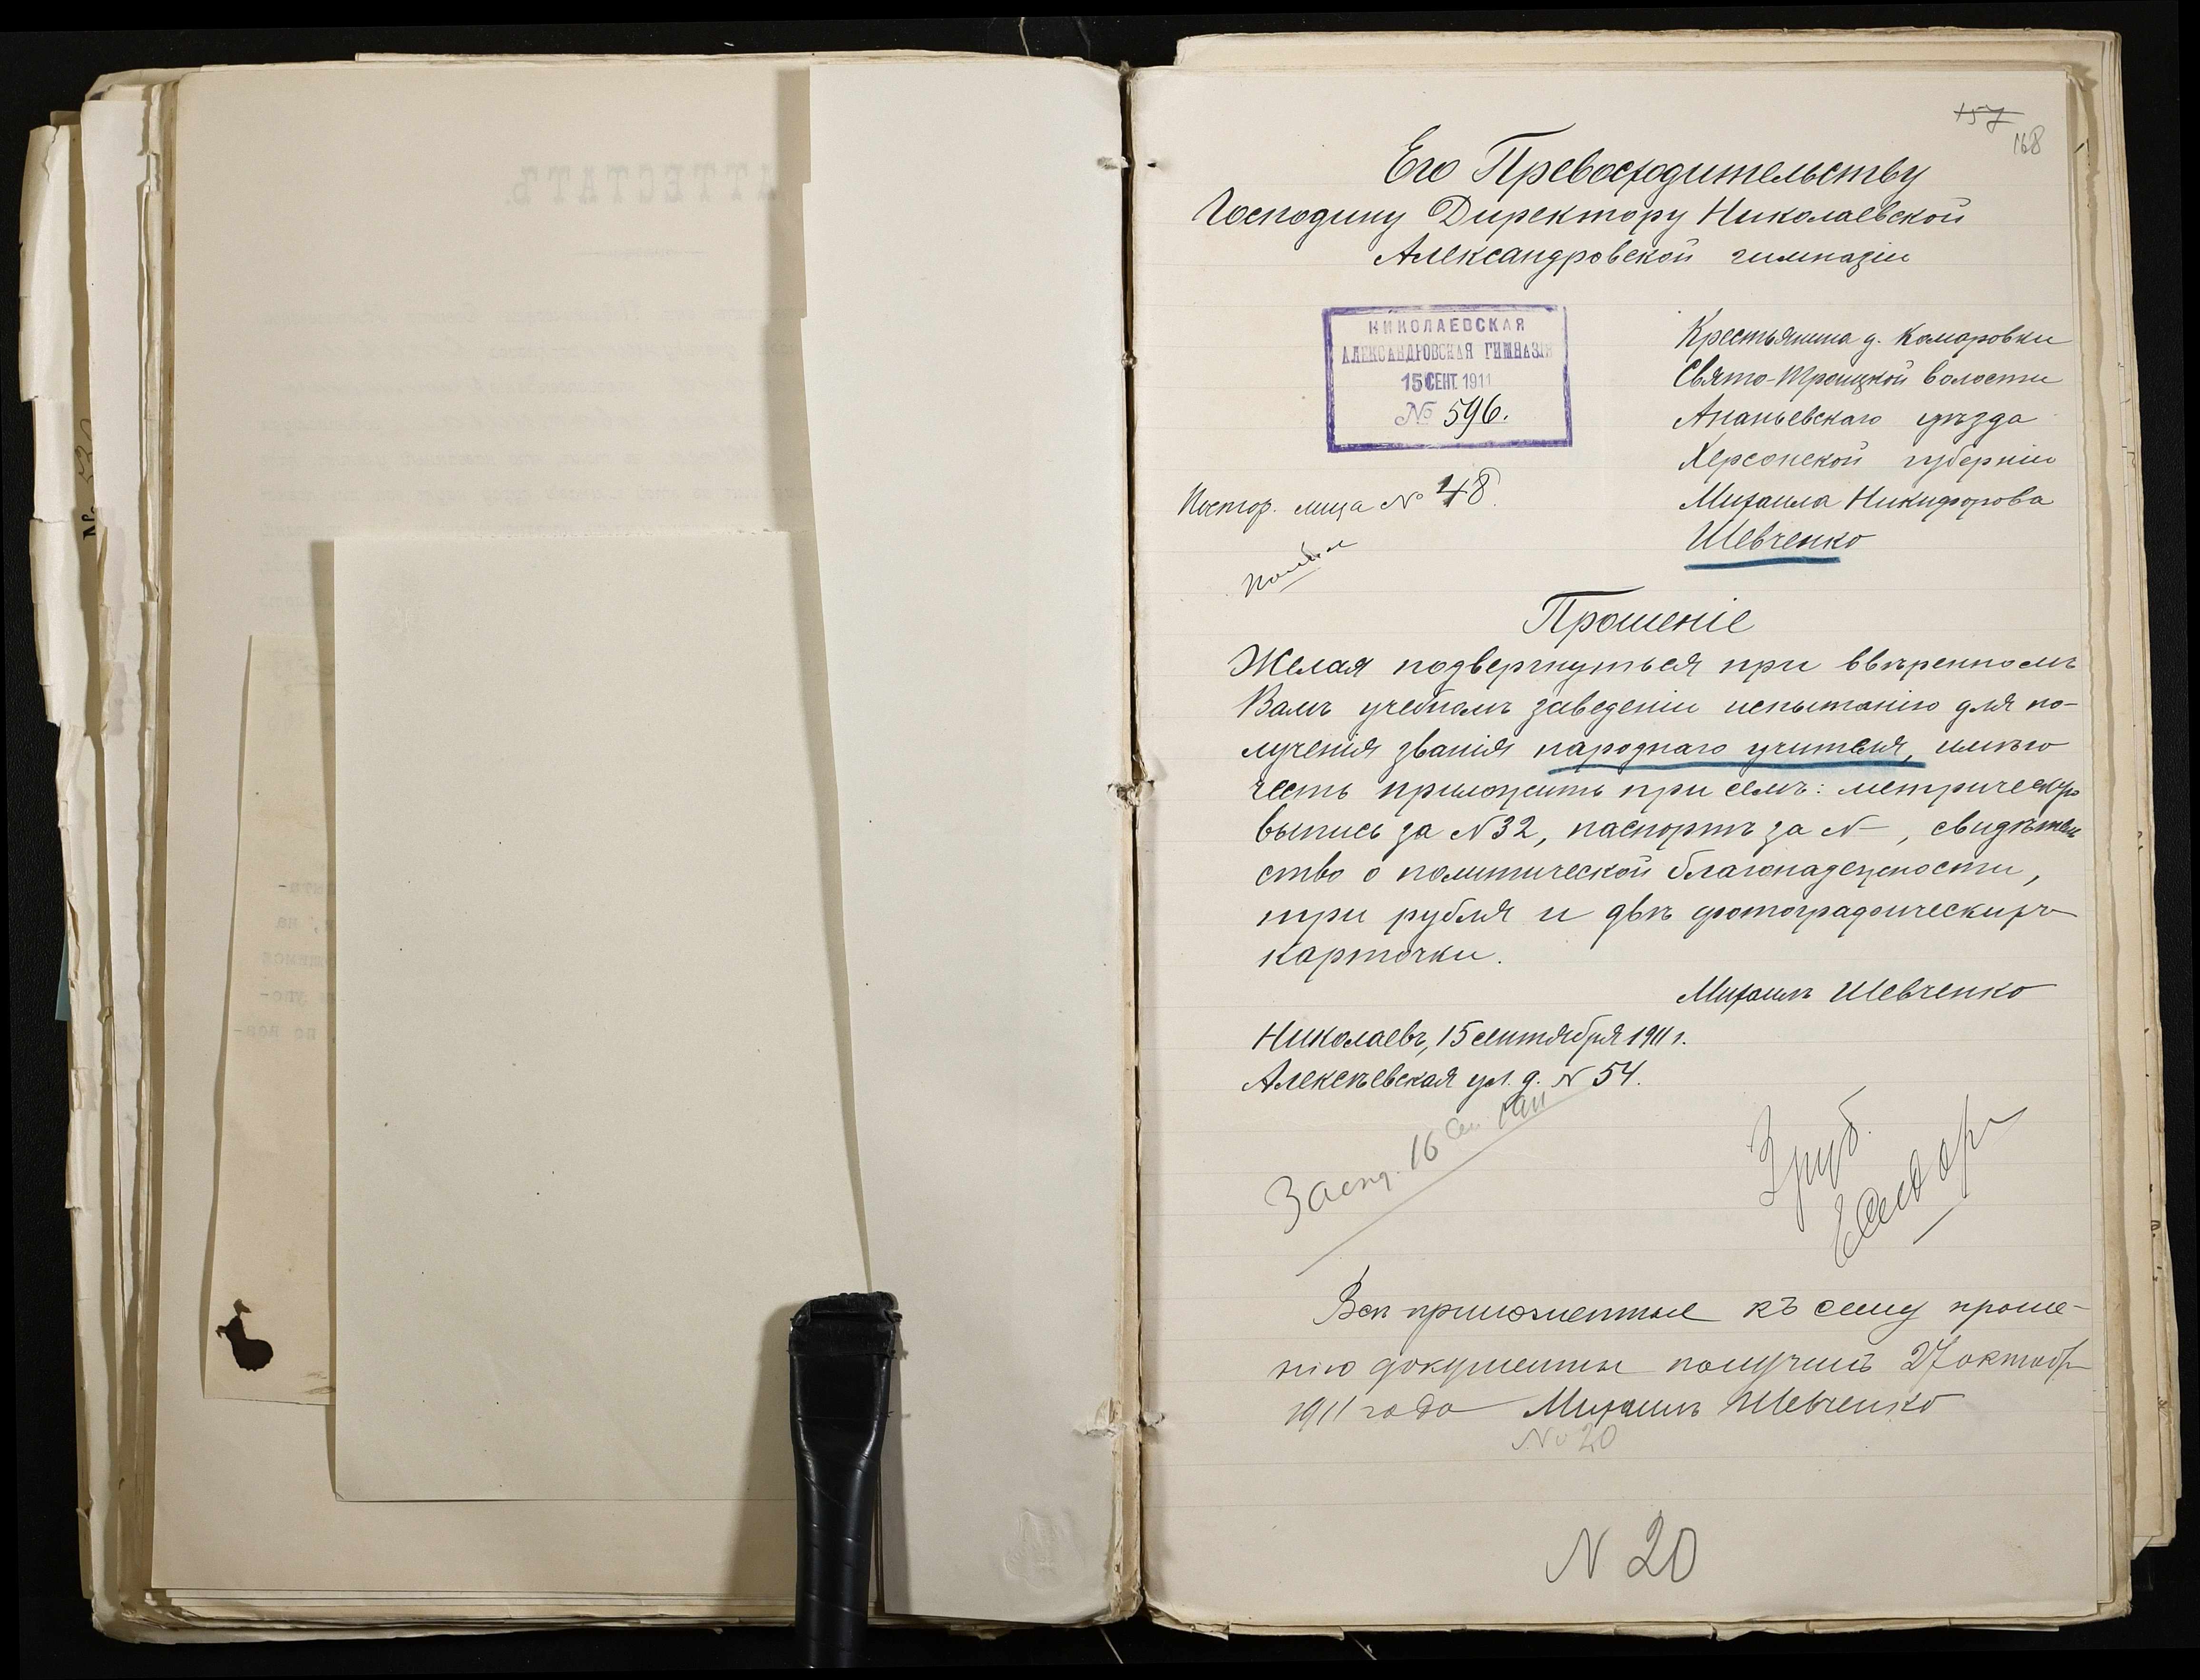 157
168
Его Превосходительству
Господину Директору Николаевской
Александровской гимназіи
НИКОЛАЕВСКАЯ
АЛЕКСАНДРОВСКАЯ ГИМНАЗІЯ
15 СЕНТ. 1911
№ 596.
Крестьянина д. Комаровки
Свято-Троицкой волости
Ананьевскаго уѣзда
Херсонской губерніи
Михаила Никифорова
Шевченко
Постор. лица № 48.
Прошеніе
Желая подвергнуться при ввѣренномъ
Вамъ учебномъ заведеніи испытанію для по-
лученія званія народнаго учителя, имѣю
честь приложить при семъ: метрическую
выпись за N 32, паспортъ за N —, свидѣтель
ство о политической благонадежности,
три рубля и двѣ фотографическихъ
карточки.
Михаилъ Шевченко
Николаевъ, 15 сентября 1911 г.
Алексѣевская ул. д. N 54.
16 Сен 1911
3 руб.
Всѣ приложенные къ сему проше-
нію документы получилъ 27 октября
1911 года Михаилъ Шевченко
№ 20
N 20
АТТЕСТАТЪ.